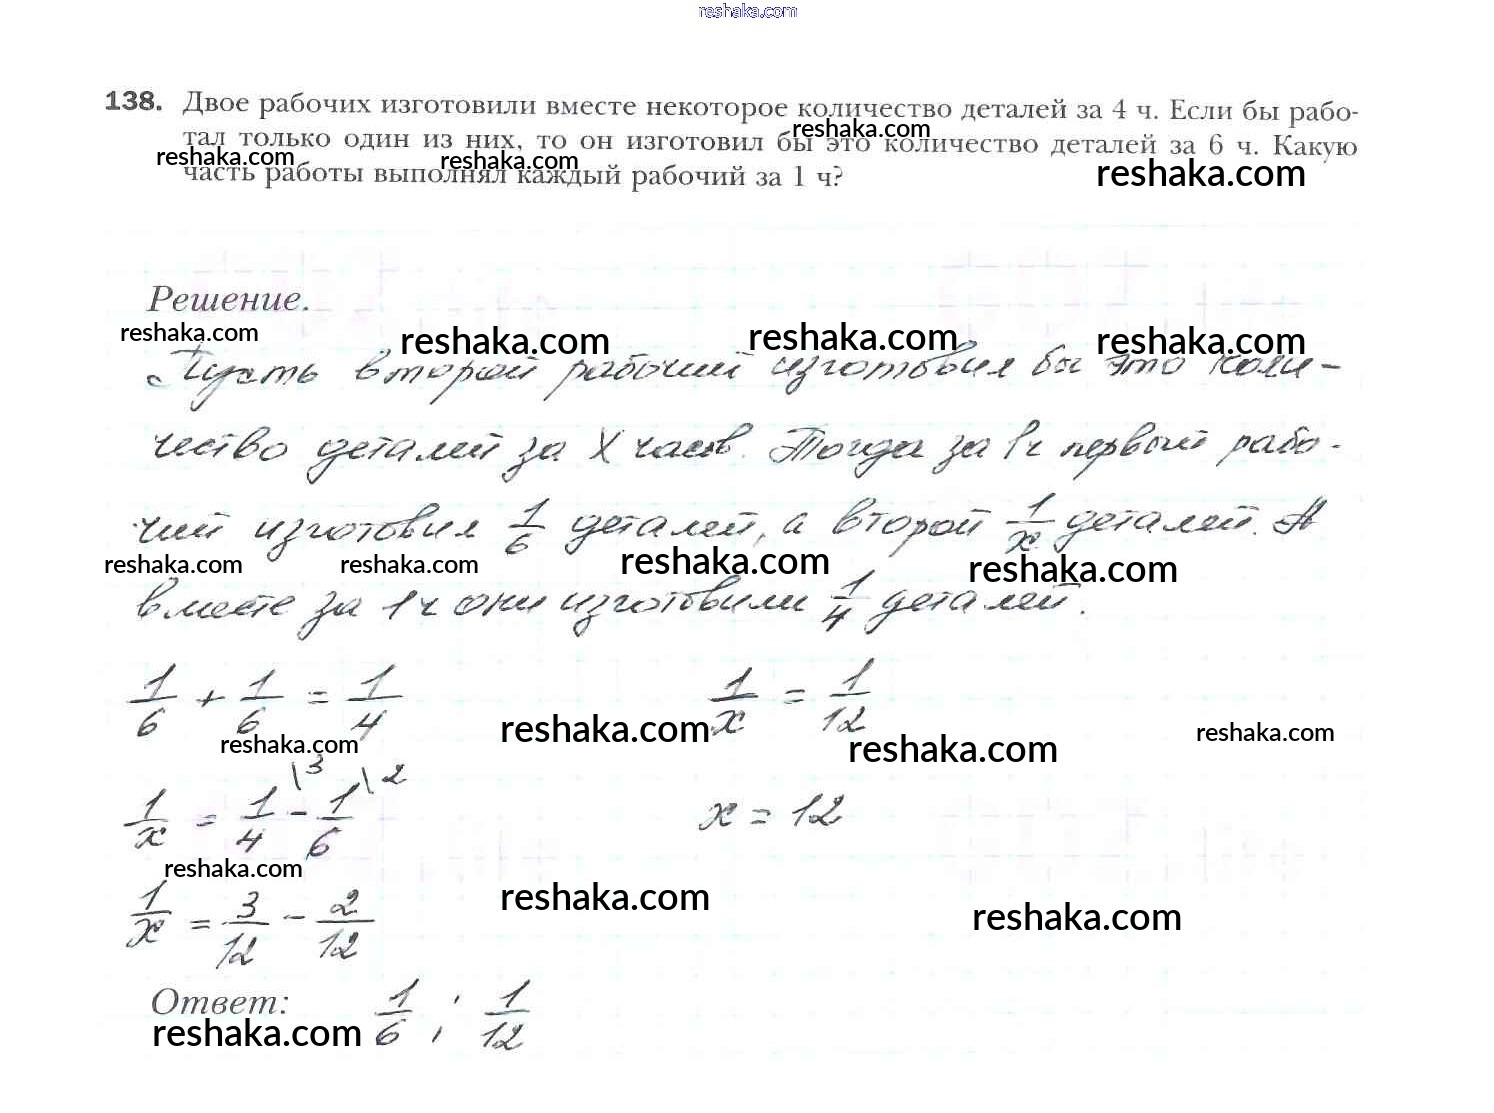 reshaka.com
138. Двое рабочих изготовили вместе некоторое количество деталей за 4 ч. Если бы рабо-
reshaka.com
тал только один из них, то он изготовил бы это количество деталей за 6 ч. Какую
reshaka.com reshaka.com reshaka.com
часть работы выполнял каждый рабочий за 1 ч?
Решение.
reshaka.com reshaka.com reshaka.com reshaka.com
Пусть второй рабочий изготовил бы это коли-
чество деталей за X часов. Тогда за 1ч первый рабо-
чий изготовил 1/6 деталей, а второй 1/x деталей. А
reshaka.com reshaka.com reshaka.com reshaka.com
вместе за 1ч они изготовили 1/4 деталей.
1/6 + 1/6 = 1/4 1/x = 1/12
reshaka.com reshaka.com reshaka.com reshaka.com
1/x = 1/4 \3 - 1/6 \2 x = 12
reshaka.com
1/x = 3/12 - 2/12
reshaka.com reshaka.com
Ответ: 1/6 ; 1/12
reshaka.com